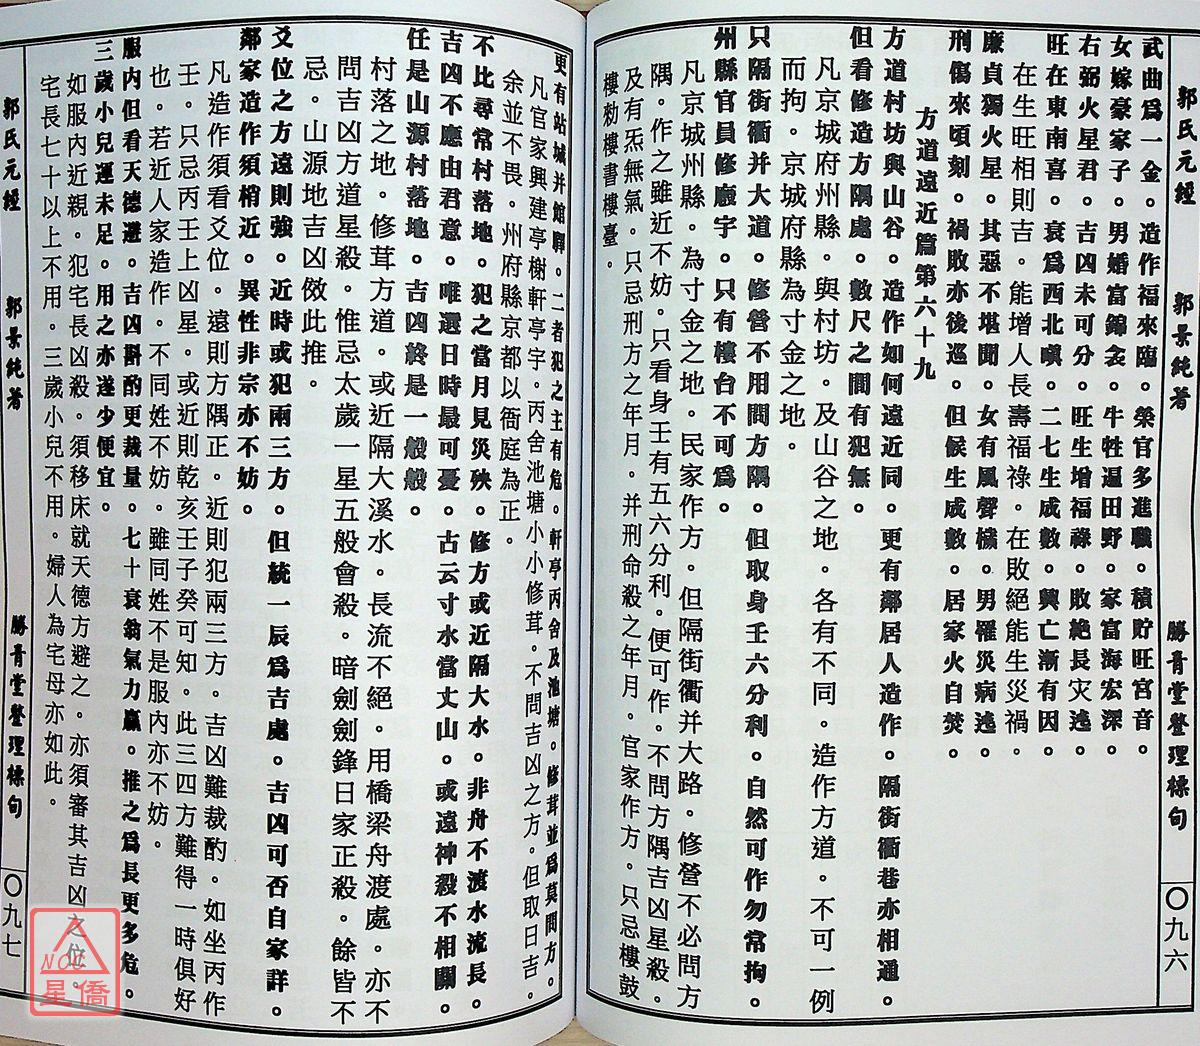 郭氏元經 郭景純著 勝青堂整理標句 〇九六
武曲爲一金。造作福來臨。榮官多進職。積貯旺宮音。
女嫁豪家子。男婚富錦衾。牛牲逼田野。家富海宏深。
右弼火星君。吉凶未可分。旺生增福祿。敗絕長灾迍。
旺在東南喜。衰爲西北嗔。二七生成數。興亡漸有因。
在生旺相則吉。能增人長壽福祿。在敗絕能生災禍。
廉貞獨火星。其惡不堪聞。女有風聲穢。男罹災病迍。
刑傷來頃刻。禍敗亦後巡。但候生成數。居家火自焚。
方道遠近篇第六十九
方道村坊與山谷。造作如何遠近同。更有鄰居人造作。隔街衢巷亦相通。
但看修造方隅處。數尺之間有犯無。
凡京城府州縣。與村坊。及山谷之地。各有不同。造作方道。不可一例
而拘。京城府縣為寸金之地。
只隔街衢并大道。修營不用問方隅。但取身壬六分利。自然可作勿常拘。
州縣官員修廳宇。只有樓台不可爲。
凡京城州縣。為寸金之地。民家作方。但隔街衢并大路。修營不必問方
隅。作之雖近不妨。只看身壬有五六分利。便可作。不問方隅吉凶星殺。
及有炁無氣。只忌刑方之年月。并刑命殺之年月。官家作方。只忌樓鼓
樓勑樓書樓臺。
更有站城并館驛。二者犯之主有危。軒亭丙舍及池塘。修葺並爲莫問方。
凡官家興建亭榭軒亭宇。丙舍池塘小小修葺。不問吉凶之方。但取日吉。
余並不畏。州府縣京都以衙庭為正。
不比尋常村落地。犯之當月見災殃。修方或近隔大水。非舟不渡水流長。
吉凶不應由君意。唯選日時最可憂。古云寸水當丈山。或遠神殺不相關。
任是山源村落地。吉凶終是一般般。
村落之地。修葺方道。或近隔大溪水。長流不絕。用橋梁舟渡處。亦不
問吉凶方道星殺。惟忌太歲一星五般會殺。暗劍劍鋒日家正殺。餘皆不
忌。山源地吉凶倣此推。
爻位之方遠則強。近時或犯兩三方。但統一辰爲吉處。吉凶可否自家詳。
鄰家造作須梢近。異性非宗亦不妨。
凡造作須看爻位。遠則方隅正。近則犯兩三方。吉凶難裁酌。如坐丙作
壬。只忌丙壬上凶星。或近則乾亥壬子癸可知。此三四方難得一時俱好
也。若近人家造作。不同姓不妨。雖同姓不是服內亦不妨。
服內但看天德避。吉凶斟酌更裁量。七十衰翁氣力羸。推之爲長更多危。
三歲小兒運未足。用之亦遂少便宜。
如服內近親。犯宅長凶殺。須移床就天德方避之。亦須審其吉凶之位。
宅長七十以上不用。三歲小兒不用。婦人為宅母亦如此。
郭氏元經 郭景純著 勝青堂整理標句 〇九七
NCC
星僑